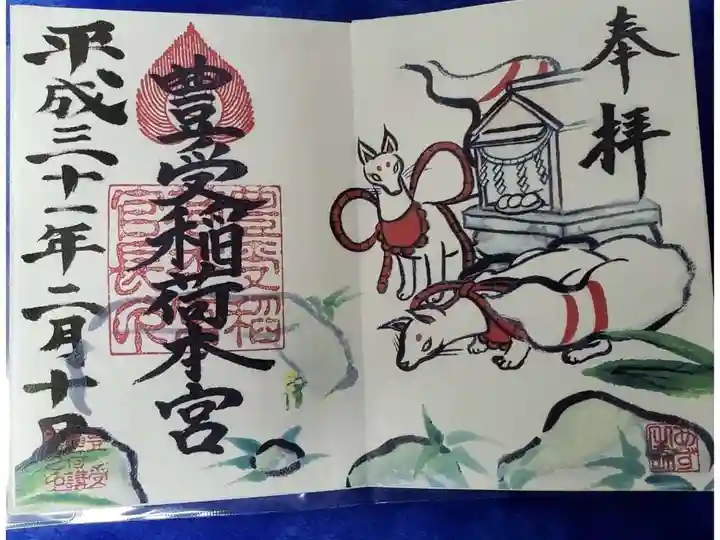 奉拝
豊受稲荷本宮
平成三十一年二月十日